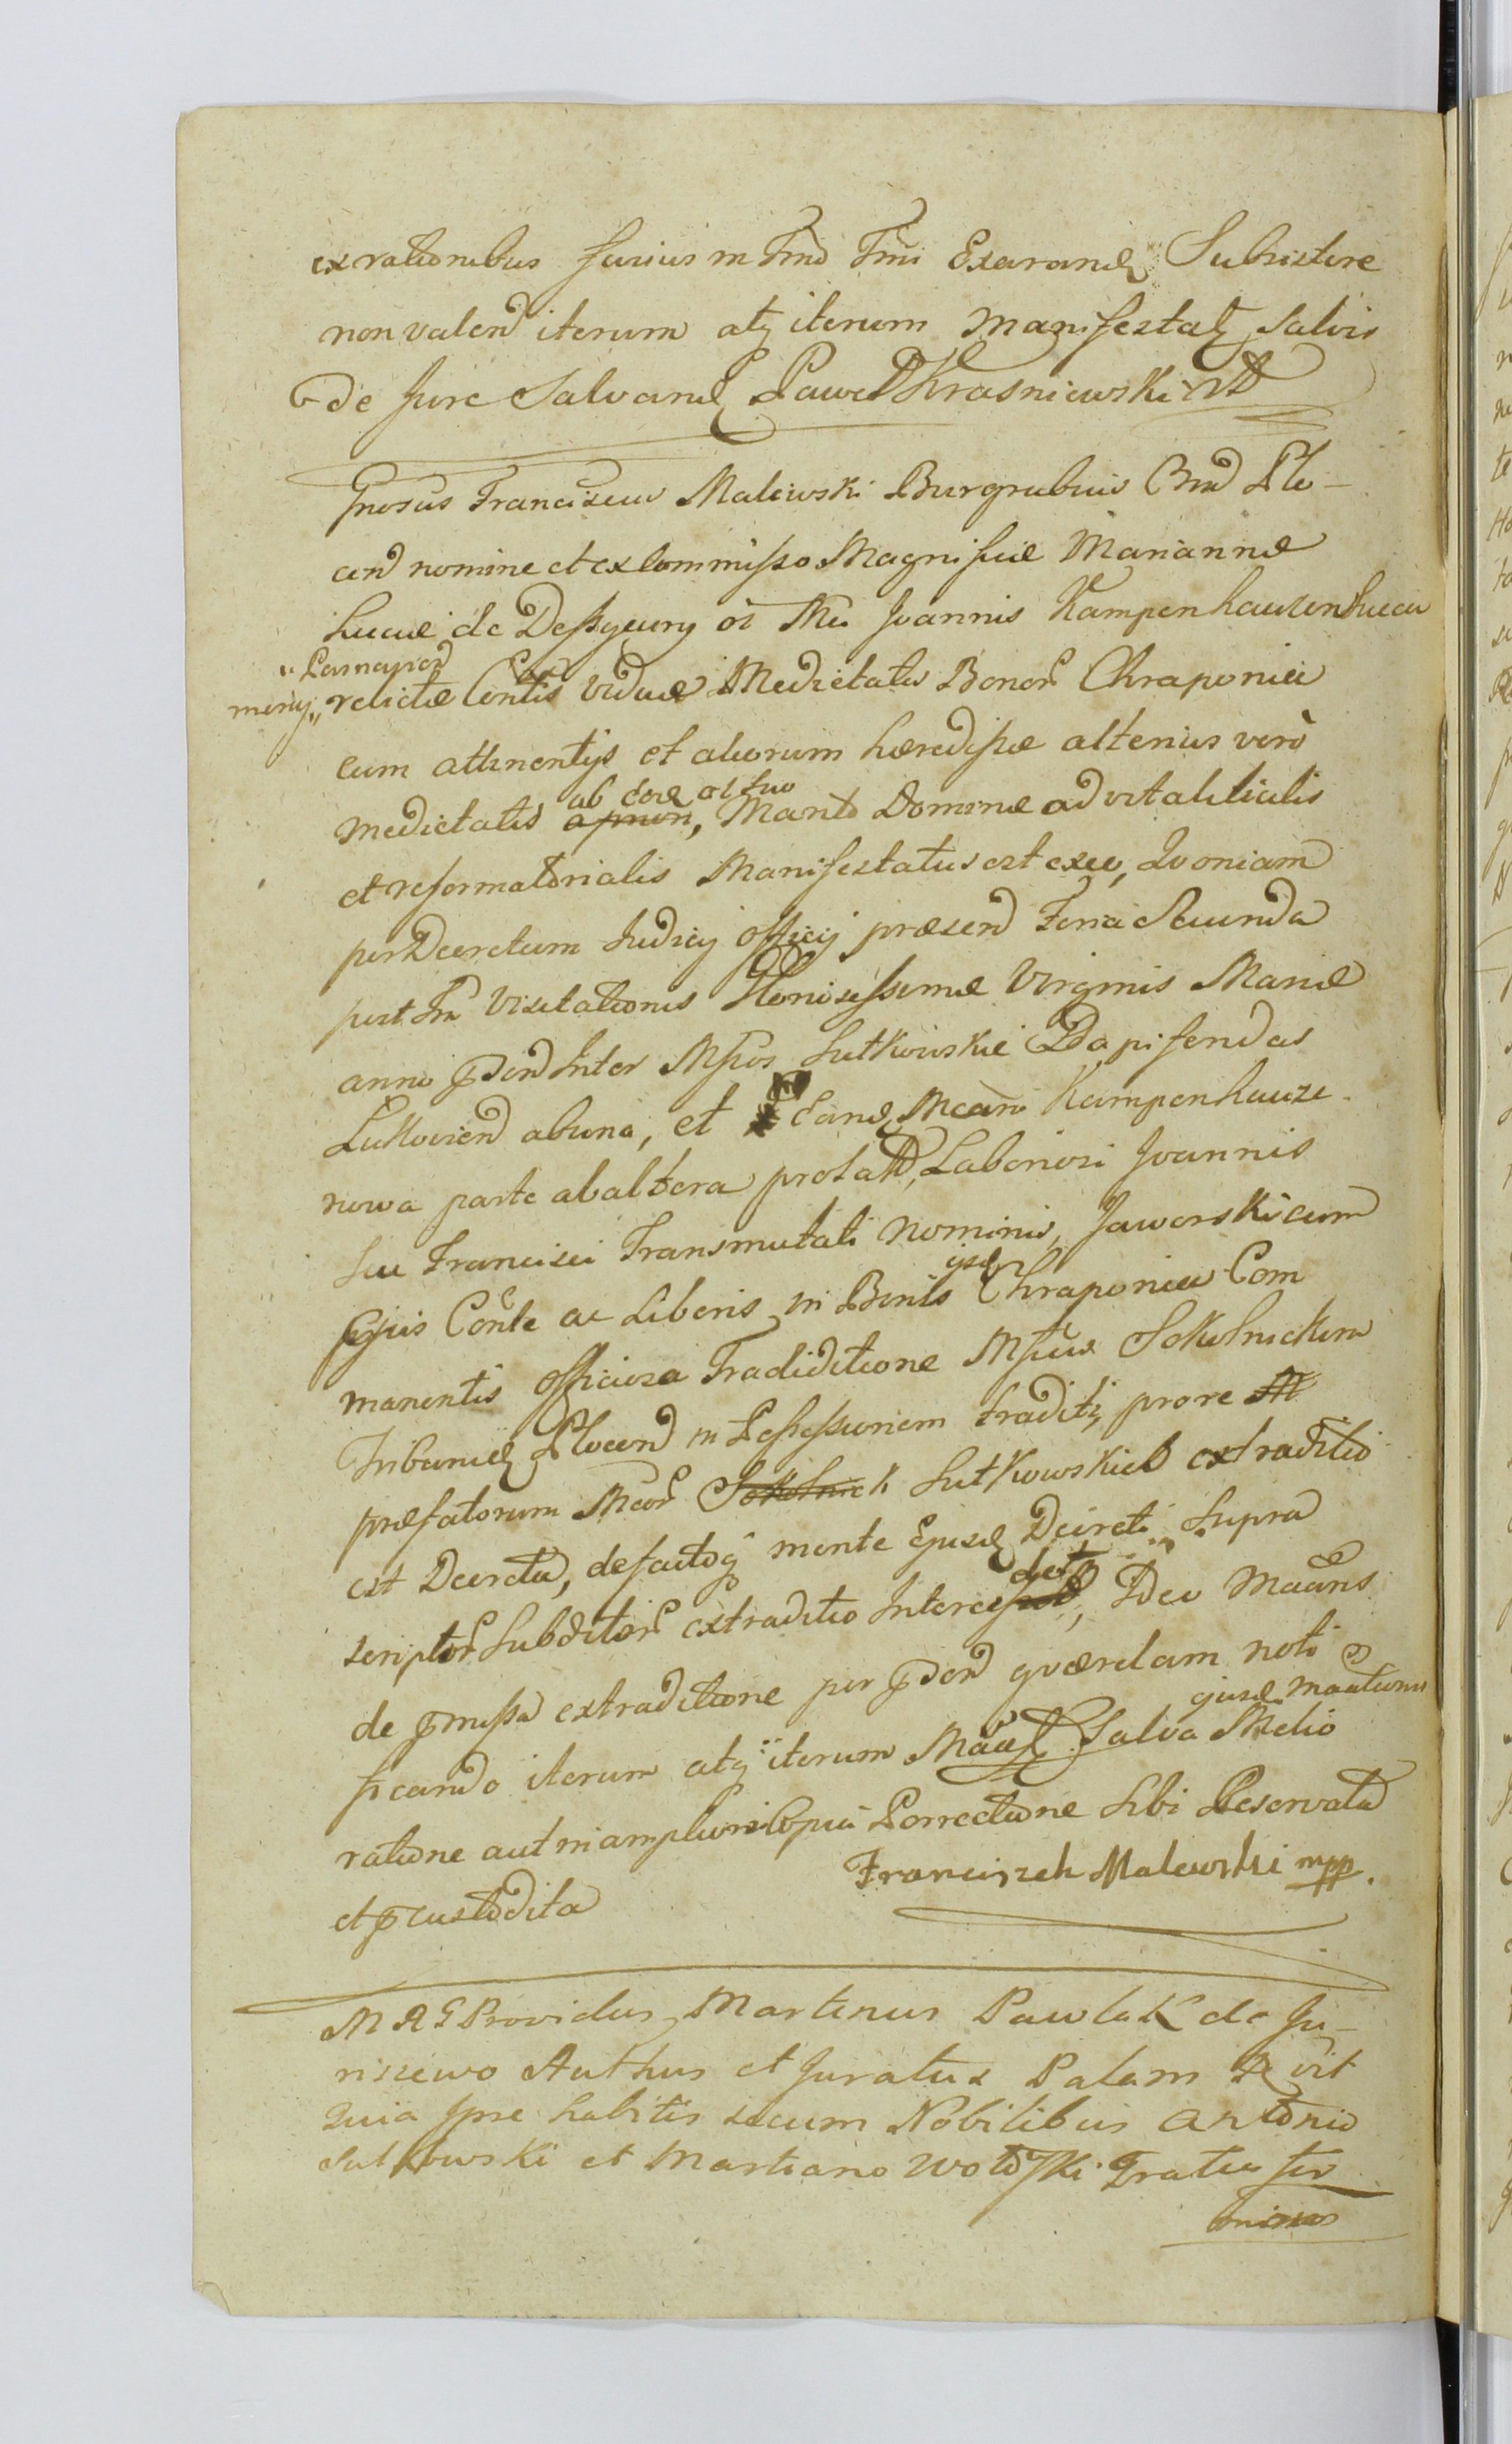 ex rationibus fusius in Tmo Tmi Exarand Subsistere
non valend iterum atq iterum Manifestatq Salvis
de Jure Salvand Paweł Krasniewski
Gnosus Franciscus Malewski Burgrabius Cnd Plo-
cen nomine et ex Commisso Magnificæ Mariannæ
de oi Mci Joannis Kampenhauzen
relictæ Contis viduæ Medietatis Bonor Chraponiei
cum attinentijs et aliorum hæredissæ alterius verò
ab suo
Medietatis Marito Dominæ advitalitialis
et reformatorialis Manifestatus est exeo, Quoniam
per Decretum Judicij Officij præsend Feria Secunda
post Fm Visitationis Glorississimæ Virginis Mariæ
anno Inter Mfcos Sutkowskie Dapiferidas
ab una, et Eand Kampenhauze-
nowa parte ab altera prolatt, Laboriosi Joannis
seu Francisci Transmutati Nominis, Jaworski cum
Conte ac Liberis in Bonis Chraponiec Com
manentis Officiosa Traditione Mfcæ Sokolnickim
Tribunid Plocend in Possessionem traditi, pro re
præfatorum Mcor Sokolnick Sutkowskich extraditio
est Decreta, defactoq mente Ejusd Decreti Supra
scriptor Subditor extraditio Inter Ideo
de pmissa extraditione per pdend quærelam noti
ejusd
ficando iterum atq iterum Salva Melio
ratione aut in ampliori Copia Porrectione Sibi Reservata
et pcustodita Franciszek Malewski mpp.
M R G Providus Martinus Pawlak de Ju-
niszewo Authus et Juratus Palam R vit
Quia Ipse habitis secum Nobilibus Antonio
Sutkowski et Martiano ter
minos